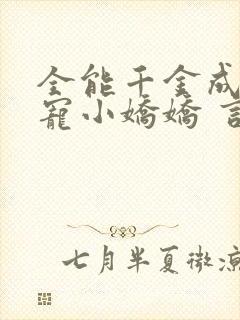 全能千金成
寵小嬌嬌
七月半夏微涼